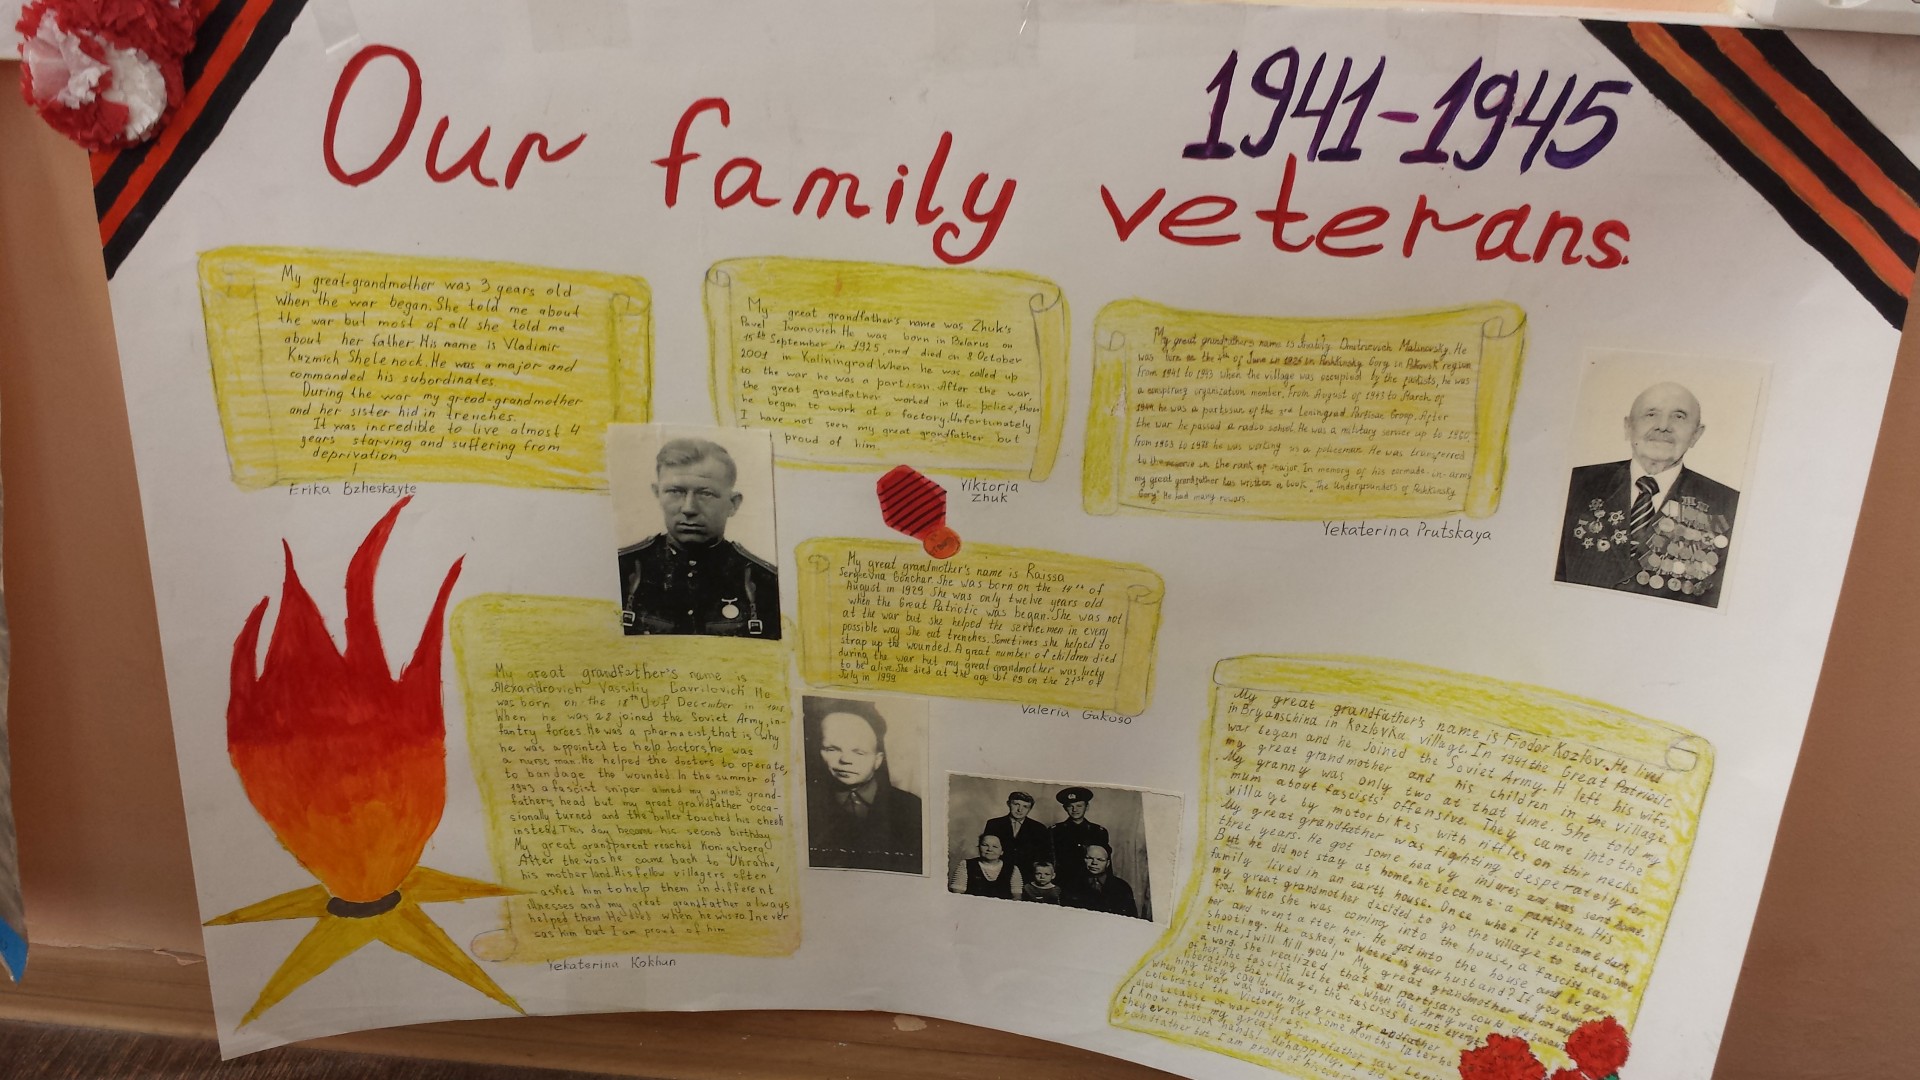 1941-1945
Our family veterans.
My great-grandmother was 3 years old
when the war began. She told me about
the war but most of all she told me
about her father His name is Vladimir
Kuzmich Shelenock. He was a major and
commanded his subordinates.
During the war my gread-grandmother
and her sister hid in trenches.
It was incredible to live almost 4
years starving and suffering from
deprivation.
Erika Bzheskayte
My great grandfather's name was Zhuk's
Pavel Ivanovich He was born in Belarus on
15th September in 1925, and died on 8 October
2001 in Kaliningrad When he was called up
to the war he was a partisan. After the war,
the great grandfather worked in the police, then
he began to work at a factory. Unfortunately
I have not seen my great grandfather but
I proud of him.
Viktoria
Zhuk
My great grandfather's name is Dmitrievich Malinovsky. He
was born on the of June in 1926 in Gory in region
From 1941 to 1943 when the village was occupied by the fastists, he was
a conspiracy organization member. From August of 1943 to March of
1944 he was a partisan of the 3rd Leningrad Partisan Group. After
the war he passed a radio school. He was a military service up to 1960
From 1963 to 1978 he was working as a policeman He was transferred
to the reserve in the rank of major. In memory of his -in-army
my great grandfather has written a book "The Undergrounders of
Gory" He had many
Yekaterina Prutskaya
My great grandmother's name is Raissa
Sergievna Gonchar. She was born on the 19th of
August in 1929 She was only twelve years old
when the Great Patriotic was began. She was not
at the war but she helped the servicemen in every
possible way She cut trenches. Sometimes she helped to
strap up the wounded. A great number of children died
during the war but my great grandmother was lucky
to be alive. She died at the age of 69 on the 21st of
July in 1999
Valeria Gukuso
My great grandfather's name is
Alexandrovich Vassiliy Gavrilovich He
was born on the 18th of December in
When he was 22 joined the Soviet Army, in-
fantry forces. He was a pharmacist, that is why
he was appointed to help doctors, he was
a nurse man. He helped the doctors to operate,
to bandage the wounded. In the summer of
1943 a fascist sniper aimed my grand-
fathers head but my great grandfather occa-
sionally turned and the buller touched his cheek
instead This day became his second birthday
My great grandparent reached Konigsberg
After the was he came back to Ukraine,
his motherland. His fellow villagers often
asked him to help them in different
illnesses and my great grandfather always
helped them He died when he was 70 I never
sas him but I am proud of him
Yekaterina Kokhun
My great grandfather's name is Fiodor Kozlov. He lived
in Bryanschina in Kozlovka village. In 1941 the Great Patriotic
war began and he joined the Soviet Army. H left his wife,
my great grandmother and his children in the village.
My granny was only two at that time. She told my
mum about fascists' offensive. They came into the
village by motorbikes with riffles on thir necks.
My great grandfather was fighting desperately for
three years. He got some heavy injures and was sent home.
But he did not stay at home, he became a partisan. His
family lived in an earth house. Once when it became dark,
my great grandmother decided to go the village to take some
food. When she was coming into the house, a fascist saw
her and went after her. He got into the house and began
shooting. He asked, "Where is your husband? If you don't
tell me, I will kill you!" My great grandmother did not say
a word. She realized that all partisans could die because
of her. The fascist let he go. When the Army was
liberating the village, the fascists burnt every-
thing they could.
When the war was over, my great grandfather
celebrated the Victory but some months later he
died because of war injures.
I know that my great grandfather saw
they even shook hands! Unhappily, I did
grandfather but I am proud of his